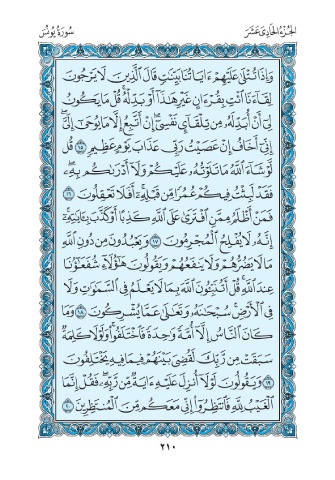 الجزء الحادي عشر
سورة يونس
وَإِذَا تُتْلَىٰ عَلَيْهِمْ ءَايَاتُنَا بَيِّنَٰتٍ قَالَ ٱلَّذِينَ لَا يَرْجُونَ
لِقَآءَنَا ٱئْتِ بِقُرْءَانٍ غَيْرِ هَٰذَآ أَوْ بَدِّلْهُ قُلْ مَا يَكُونُ
لِىٓ أَنْ أُبَدِّلَهُۥ مِن تِلْقَآئِ نَفْسِىٓ إِنْ أَتَّبِعُ إِلَّا مَا يُوحَىٰٓ إِلَىَّ
إِنِّىٓ أَخَافُ إِنْ عَصَيْتُ رَبِّى عَذَابَ يَوْمٍ عَظِيمٍ ١٥ قُل
لَّوْ شَآءَ ٱللَّهُ مَا تَلَوْتُهُۥ عَلَيْكُمْ وَلَآ أَدْرَىٰكُم بِهِۦ
فَقَدْ لَبِثْتُ فِيكُمْ عُمُرًا مِّن قَبْلِهِۦٓ أَفَلَا تَعْقِلُونَ ١٦
فَمَنْ أَظْلَمُ مِمَّنِ ٱفْتَرَىٰ عَلَى ٱللَّهِ كَذِبًا أَوْ كَذَّبَ بِـَٔايَٰتِهِۦٓ
إِنَّهُۥ لَا يُفْلِحُ ٱلْمُجْرِمُونَ ١٧ وَيَعْبُدُونَ مِن دُونِ ٱللَّهِ
مَا لَا يَضُرُّهُمْ وَلَا يَنفَعُهُمْ وَيَقُولُونَ هَٰٓؤُلَآءِ شُفَعَٰٓؤُنَا
عِندَ ٱللَّهِ قُلْ أَتُنَبِّـُٔونَ ٱللَّهَ بِمَا لَا يَعْلَمُ فِى ٱلسَّمَٰوَٰتِ وَلَا
فِى ٱلْأَرْضِ سُبْحَٰنَهُۥ وَتَعَٰلَىٰ عَمَّا يُشْرِكُونَ ١٨ وَمَا
كَانَ ٱلنَّاسُ إِلَّآ أُمَّةً وَٰحِدَةً فَٱخْتَلَفُوا۟ وَلَوْلَا كَلِمَةٌ
سَبَقَتْ مِن رَّبِّكَ لَقُضِىَ بَيْنَهُمْ فِيمَا فِيهِ يَخْتَلِفُونَ
١٩ وَيَقُولُونَ لَوْلَآ أُنزِلَ عَلَيْهِ ءَايَةٌ مِّن رَّبِّهِۦ فَقُلْ إِنَّمَا
ٱلْغَيْبُ لِلَّهِ فَٱنتَظِرُوٓا۟ إِنِّى مَعَكُم مِّنَ ٱلْمُنتَظِرِينَ ٢٠
٢١٠